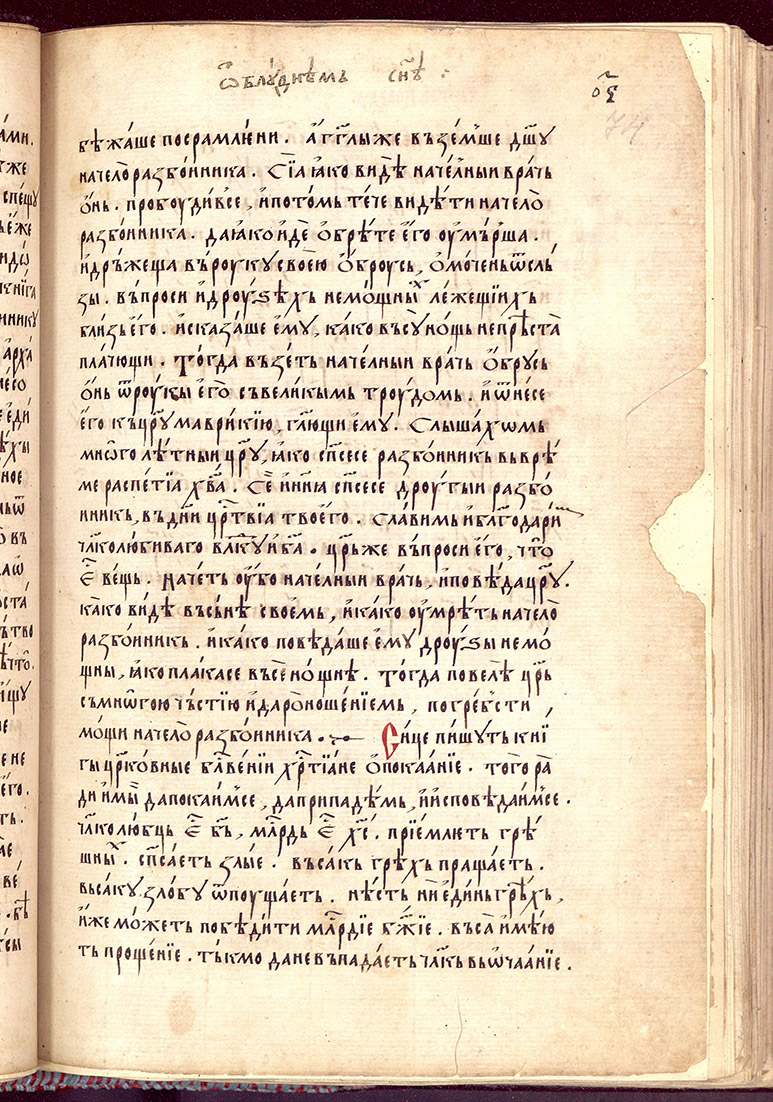 ѿ блꙋднѣмь сн҃ѣ :
о҃ѕ
74
бѣжа́ше посрамлѥ́ни . а҆́гг҃лы же възе́мше дш҃ꙋ
начело́разбо́нника . Сїа ꙗ҆́ко ви́дѣ наче́лныи вра́чь
ѻ҆́нь . пробоуди́ все , и҆ пото́мь те́че ви́дѣти начело̀
разбо́нника . да ꙗ҆́ко и҆́де ѻ҆брѣ́те є҆го̀ оу҆мръ́ша .
и҆ дръ́жеща въ роукꙋ̀ своѥ́ю ѻ҆́броусь , ѻ҆мо́чень ѿ слъ́
зы . въпроси и҆ дроу́ѕѣхь немо́щныⷯ леже́щїихь
бли́зь є҆го̀ . и҆ сказа́ше є҆мꙋ̀ , ка́ко въсꙋ̀ но́щь непрѣ́ста
пла́чющи . Тогда̀ възе́ть наче́лныи вра́чь ѻ҆́брꙋсь
ѻ҆́нь ѿ роу́кы є҆го̀ съ вели́кымь троу́домь . и҆ ѿне́се
є҆го̀ къ цр҃ꙋ маврикі́ю , гл҃ющи є҆мꙋ̀ . Слы́шахѡмь
мнѡ́го лѣ́тныи цр҃ꙋ , ꙗ҆́ко сп҃сесе разбо́нникь въ врѣ́
ме распе́тїа хв҃а . Се́ и҆ нн҃ꙗ сп҃сесе дроу́гыи разбо́
нникь , въ дн҃и црⷭ҇твїа твоѥ́го . сла́вимь и҆ блⷢ҇одари́ⷨ
чл҃колюби́ваго влⷣкꙋ и҆ ба҃ . цр҃ь же въпроси є҆го̀ , что̀
є҆ⷭ҇ вещь . наче́ть оу҆́бо наче́лныи вра́чь , и҆ повѣ́да цр҃ꙋ .
ка́ко ви́дѣ въ съ́нѣ своѥ́мь , и҆ ка́ко оу҆мрѣ́ть начело̀
разбо́нникь . и҆ ка́ко повѣ́даше є҆мꙋ̀ дроу́ѕы немо́
щны , ꙗ҆́ко пла́касе въсе но́щнѣ . Тогда̀ повелѣ̀ цр҃ь
съ мнѡ́гою чь́стїю и҆ дароноше́нїемь , погре́бсти
мо́щи начело̀ разбо́нника . Си́це пи́шꙋть кни́
гы црⷦ҇о́вные блⷭ҇ве́нїи хрⷭ҇тїа́не ѻ҆ покаа́нїе . того̀ ра́
ди и҆ мы̀ да покаи́мсе , да припаде́мь , и҆ и҆сповѣ́даимсе .
чл҃колю́бць є҆ⷭ҇ бь҃ , млⷭ҇рдь є҆ⷭ҇ хс҃ . прїе́млѥть грѣ́
шныⷯ . сп҃са́еть злы́е . въса́кь грѣ́хь праща́еть .
въса́кꙋ зло́бꙋ ѿпоуща́еть . нѣ́сть ни є҆ди́нь грѣ́хь ,
и҆́же мо́жеть повѣ́дити млⷭ҇рдїе бж҃їе . въса̀ и҆мѣ́ю
ть проще́нїе . тъ́кмо да не въпада́еть чл҃кь въ ѡ҆чаа́нїе .